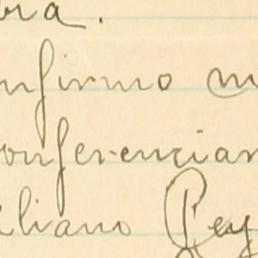 bra.
nfirmo m
onferencian
iliano Rey